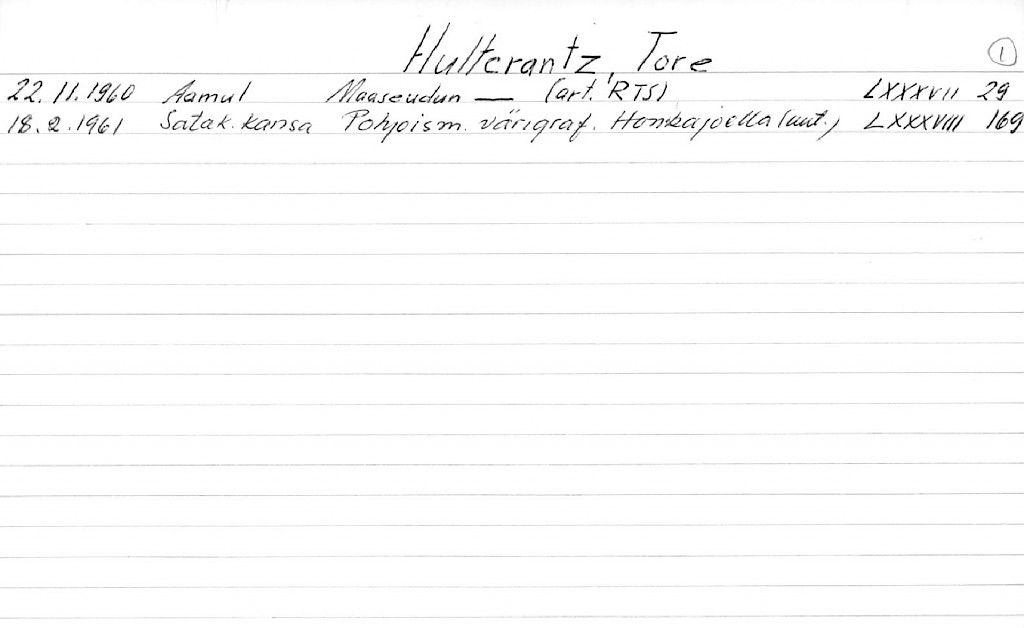 Hultcrantz, Tore 1
22.11.1960 Aamul Maaseudun — (art. RTS) LXXXVII 29
18.2.1961 Satak. kansa Pohjoism. värigraf. Honkajoella (uut.) LXXXVIII 169